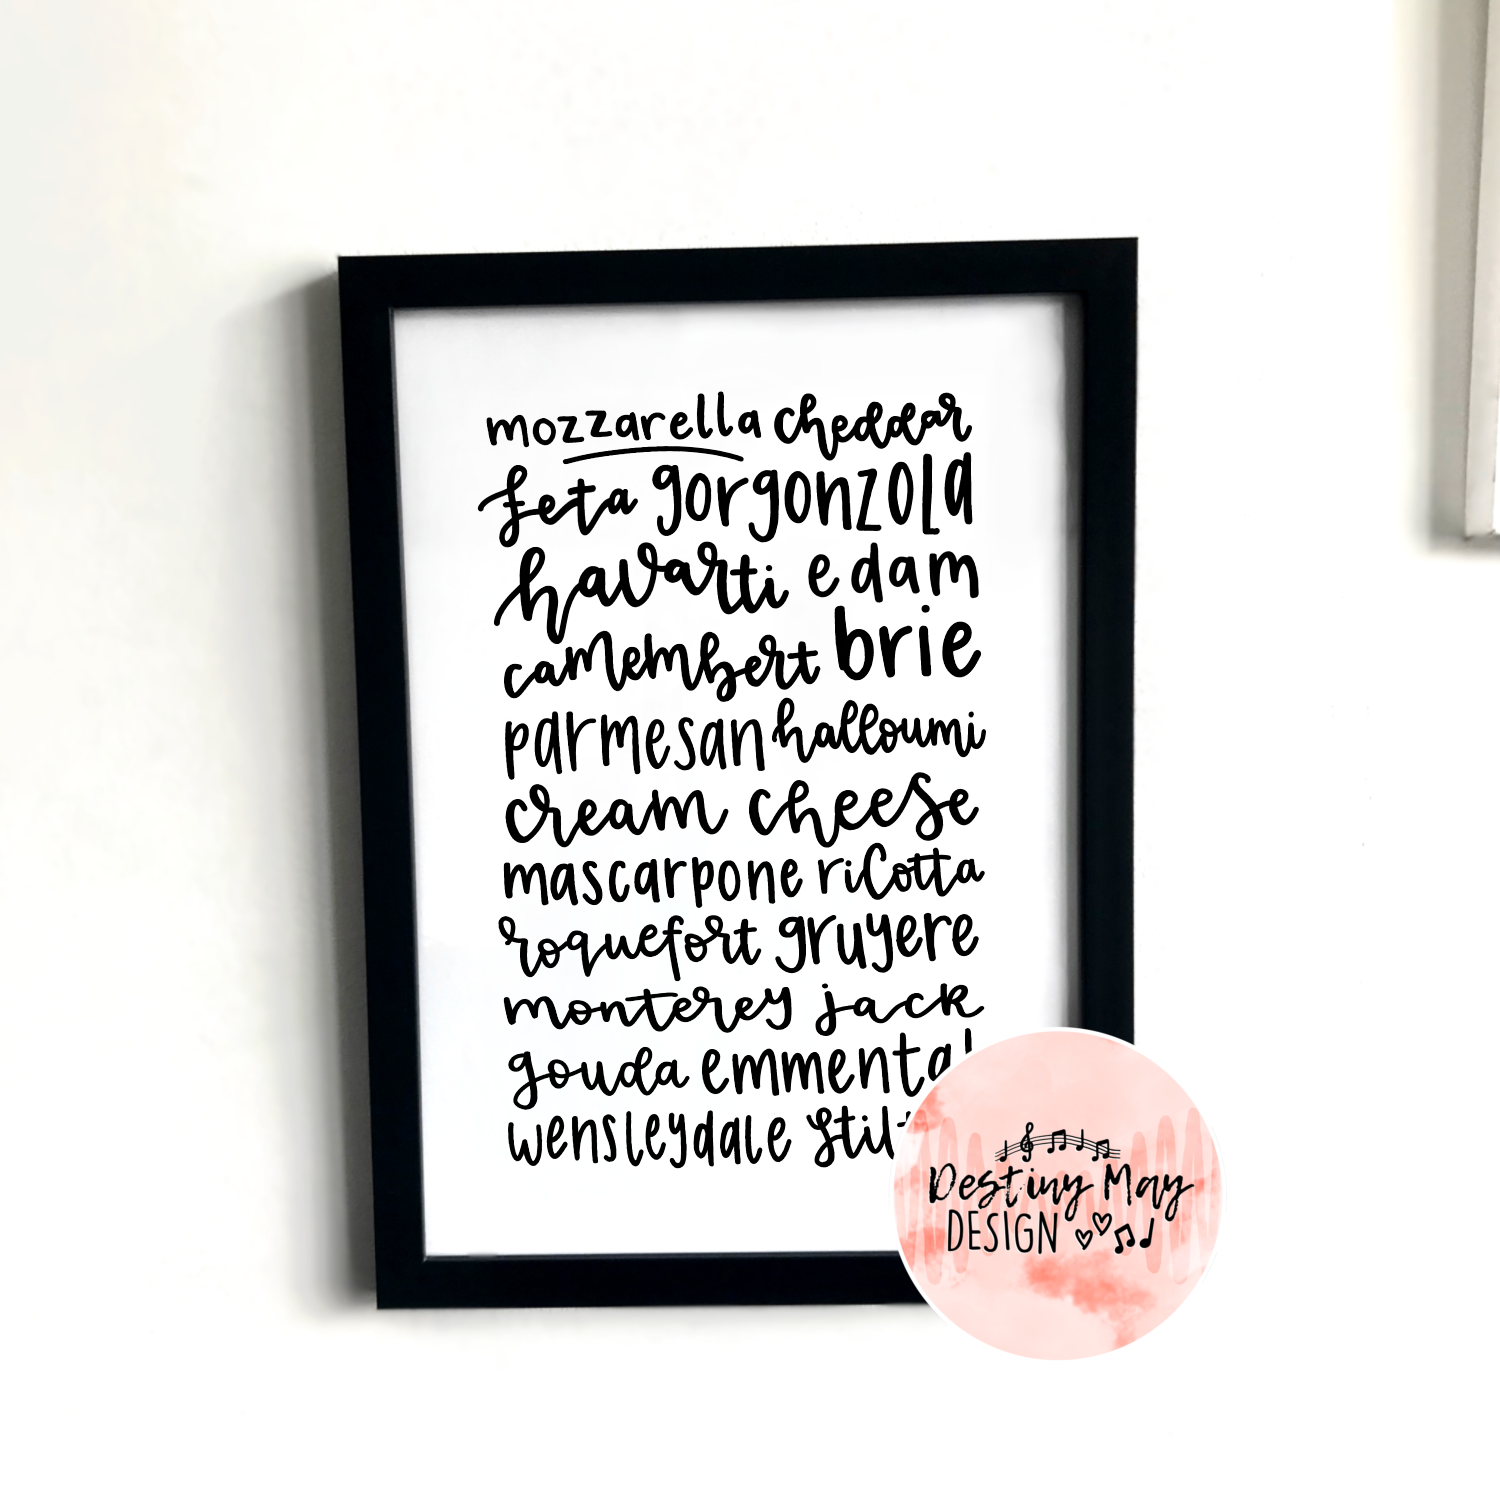 mozzarella cheddar
feta gorgonzola
havarti edam
camembert brie
parmesan halloumi
cream cheese
mascarpone ricotta
roquefort gruyere
monterey jack
gouda emmental
wensleydale
Destiny May
DESIGN